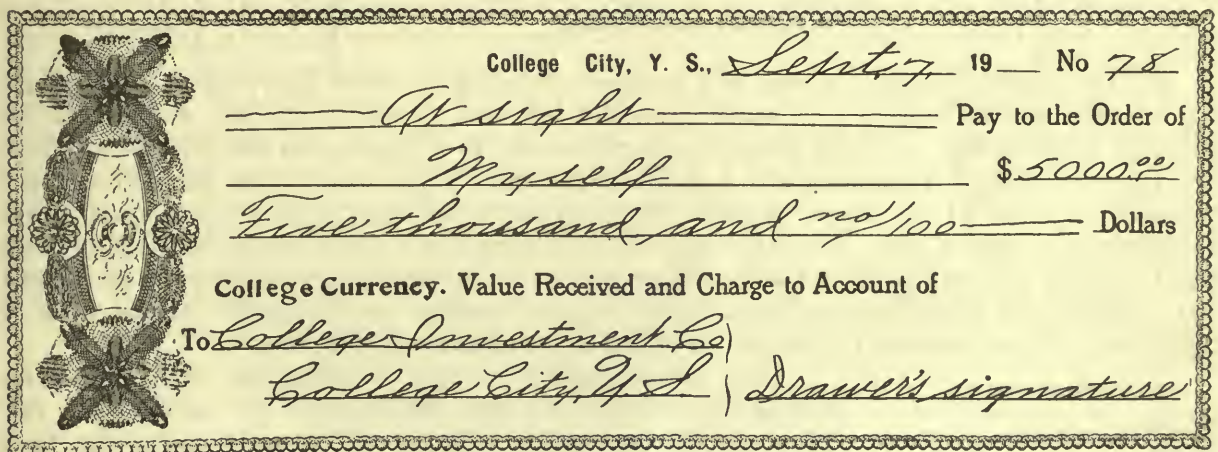 College City, Y. S., Sept. 7, 19 No 78
At sight Pay to the Order of
Myself $5000.00
Five thousand and no/100 Dollars
College Currency. Value Received and Charge to Account of
To College Investment Co
College City, Y. S. Drawer's signature